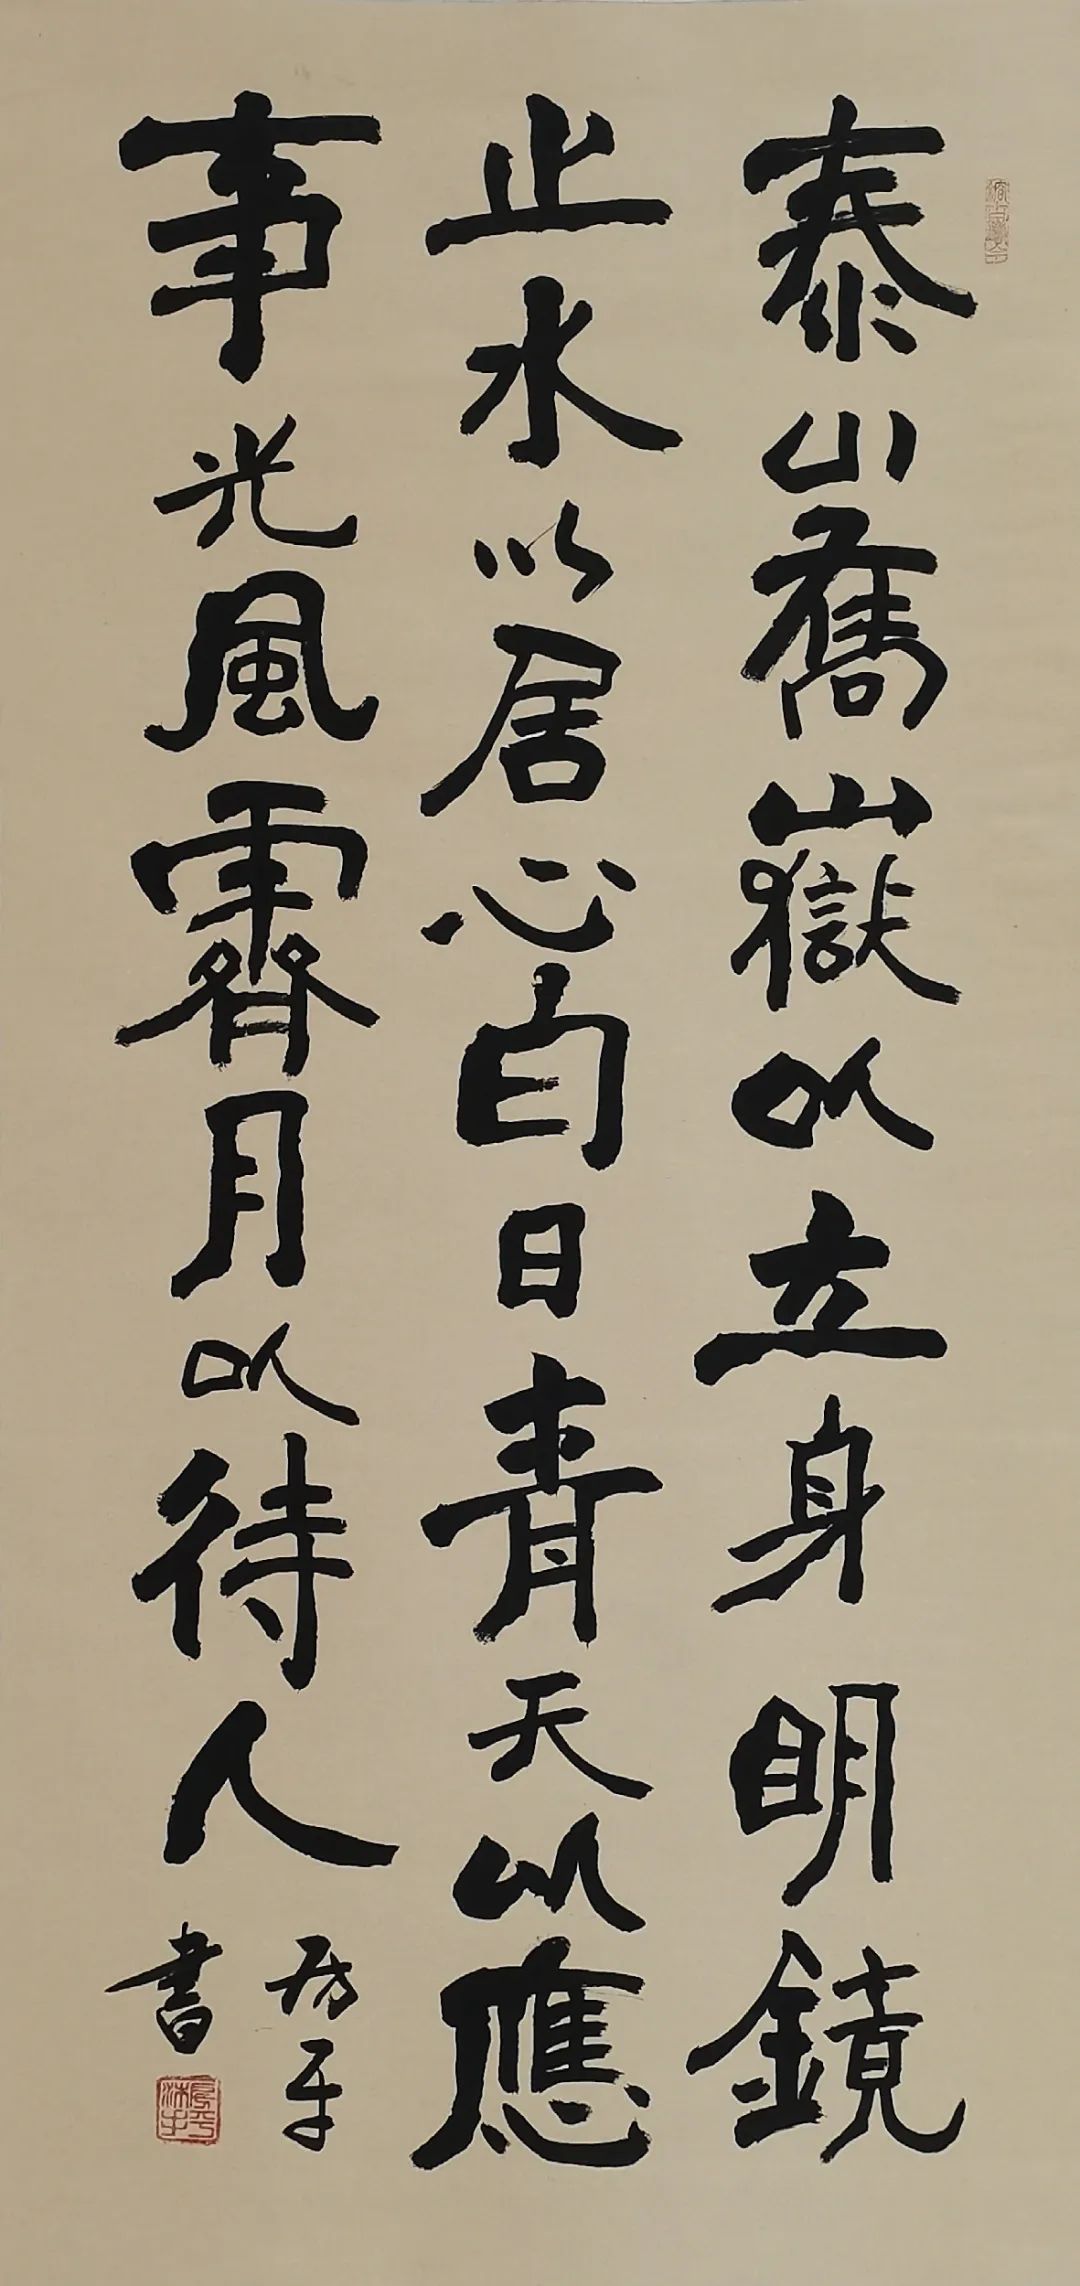 泰山喬嶽以立身明鏡
止水以居心白日青天以應
事光風霽月以待人
平
書